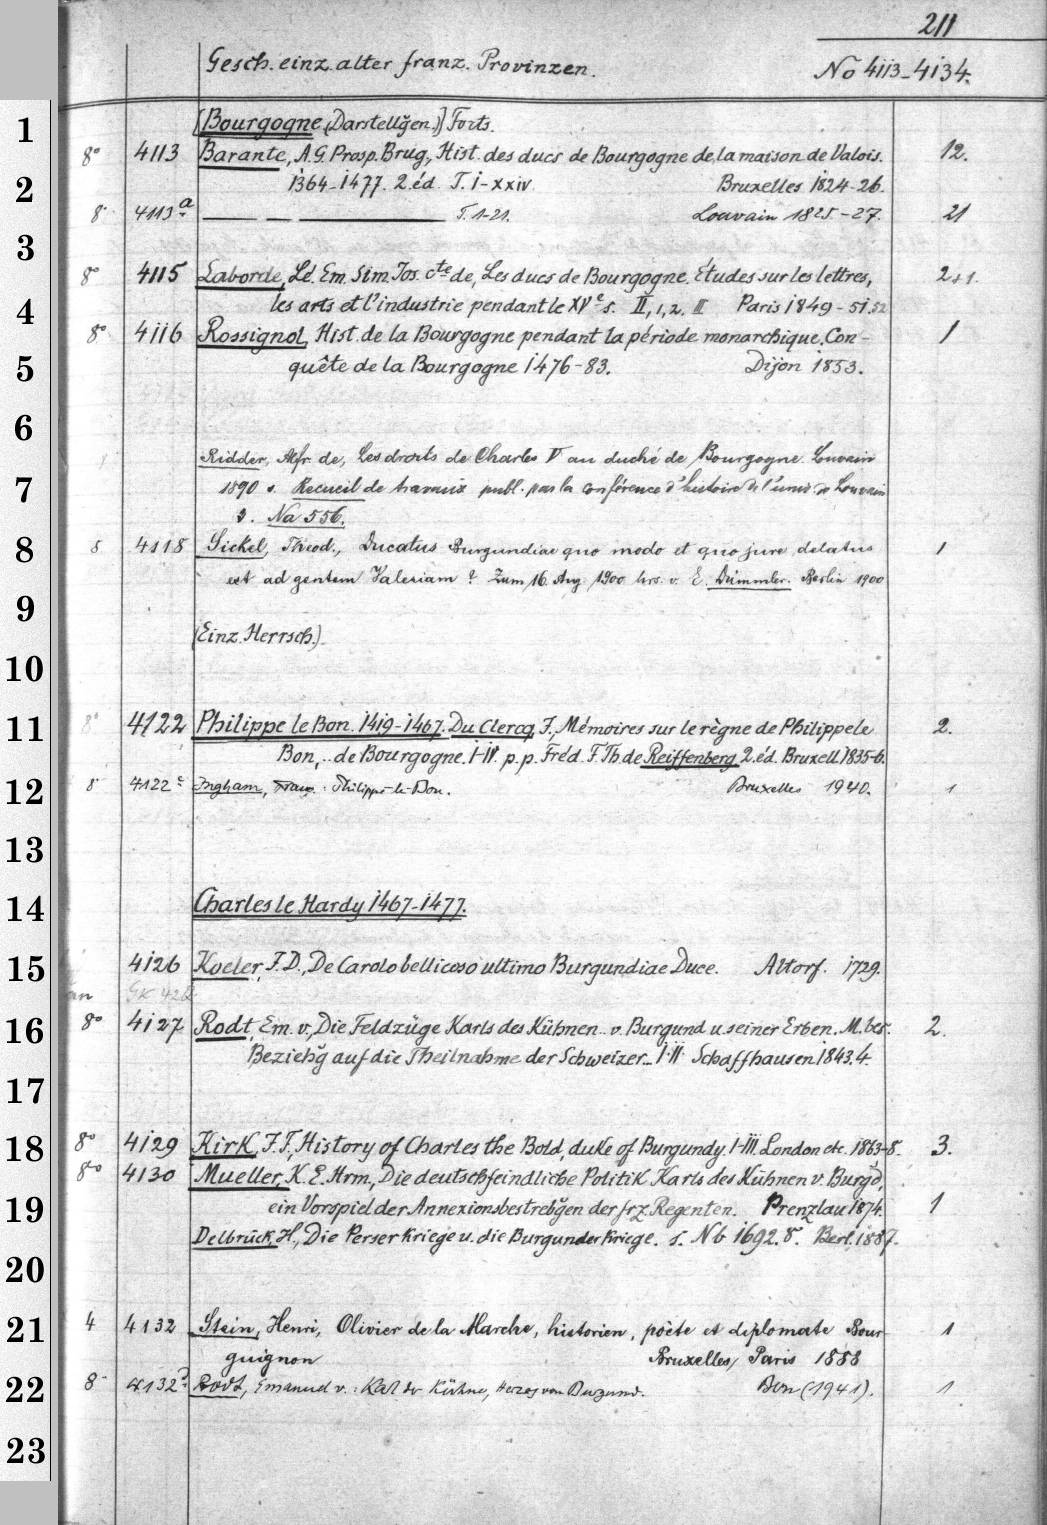 211
Gesch. einz. alter franz. Provinzen. No 4113-4134.
1
[Bourgogne (Darstellg̃en.)] Forts.
8° 4113 Barante, A. G. Prosp. Brug., Hist. des ducs de Bourgogne de la maison de Valois. 12.
2
1364-1477. 2. éd. T. I-XXIV. Bruxelles 1824-26.
8° 4113a T. 1-21. Louvain 1825-27. 21
3
8° 4115 Laborde, Lé. Em. Sim. Jos. cte de, Les ducs de Bourgogne. Études sur les lettres, 2+1.
4
les arts et l'industrie pendant le XVe s. II, 1, 2. III Paris 1849-51.52
8° 4116 Rossignol, Hist. de la Bourgogne pendant la période monarchique. Con- 1
5
quête de la Bourgogne 1476-83. Dijon 1853.
6
Ridder, Alfr. de, Les droits de Charles V au duché de Bourgogne. Louvain
7
1890 s. Recueil de travaux publ. par la conférence d'histoire de l'univ. de Louvain
2. Na 556.
8
8 4118 Sickel, Theod., Ducatus Burgundiae quo modo et quo jure delatus 1
est ad gentem Valesiam? Zum 16. Aug. 1900 hrs. v. E. Dümmler. Berlin 1900
9
(Einz. Herrsch.)
10
11
8° 4122 Philippe le Bon. 1419-1467. Du Clercq, J., Mémoires sur le règne de Philippe le 2.
Bon,.. de Bourgogne. I-IV. p. p. Fréd. F. Th. de Reiffenberg 2. éd. Bruxell. 1835-6.
12
8° 4122c Ingham, : Philippe-le-Bon. Bruxelles 1940. 1
13
14
Charles le Hardy 1467-1477.
15
4126 Koeler, J. D., De Carolo bellicoso ultimo Burgundiae Duce. Altorf. 1729.
16
8° 4127 Rodt, Em. v., Die Feldzüge Karls des Kühnen.. v. Burgund u. seiner Erben. M. bes. 2.
Beziehg̃ auf die Theilnahme der Schweizer.. I. II. Schaffhausen 1843.4.
17
18
8° 4129 Kirk, J. F., History of Charles the Bold, duke of Burgundy. I-III. London etc. 1863-8. 3.
8° 4130 Mueller, K. E. Hrm., Die deutschfeindliche Politik Karls des Kühnen v. Burgd,
19
ein Vorspiel der Annexionsbestrebg̃en der frz. Regenten. Prenzlau 1874. 1
Delbrück, H., Die Perserkriege u. die Burgunderkriege. s. Nb 1692. 8°. Berl. 1887.
20
21
4 4132 Stein, Henri, Olivier de la Marche, historien, poète et diplomate Bour- 1
guignon Bruxelles, Paris 1888
22
8° 4132a Rodt, Emanuel v.: Karl der Kühne, Herzog von Burgund. Bern (1941). 1
23